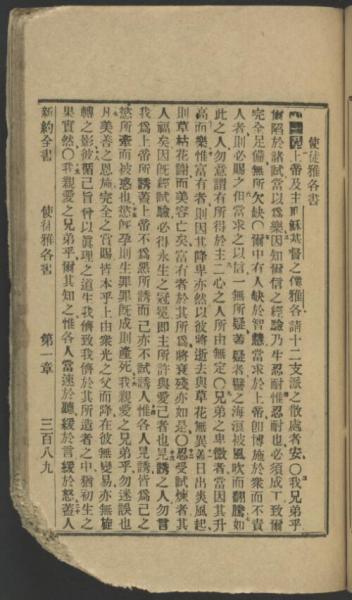 使徒雅各書
上帝及主耶穌基督之僕雅各請十二支派之散處者安〇我兄弟乎
爾陷於諸試當以爲樂因知爾信之經驗乃生忍耐惟忍耐也必須成工致爾
完全足備無所欠缺〇爾中有人缺於智慧當求於上帝即博施於衆而不責
人者則必賜之但當求之以信一無所疑蓋疑者譬之海浪被風吹而翻騰如
此之人勿意謂有所得於主二心之人所由無定〇兄弟之卑微者當因其升
高而樂惟富有者則因其降卑亦然以彼將逝去與草花無異蓋日出炎風起
則草枯花謝而美容亡矣富有者於其所爲將衰殘亦如是〇忍受試煉者其
人福矣因既經試驗必得永生之冠冕即主所許與愛己者也見誘之人勿言
我爲上帝所誘蓋上帝不爲惡所誘而己亦不試誘人惟各人見誘皆爲己之
慾所牽而被惑也慾既孕則生罪罪既成則產死我親愛之兄弟乎勿迷誤也
凡美善之恩施完全之賞賜皆本乎上由衆光之父而降在彼無變易亦無旋
轉之影彼循己旨曾以眞理之道生我儕致我儕於其所造者之中猶初生之
果實然〇我親愛之兄弟乎爾其知之惟各人當速於聽緩於言緩於怒蓋人
新約全書 使徒雅各書 第一章 三百八九